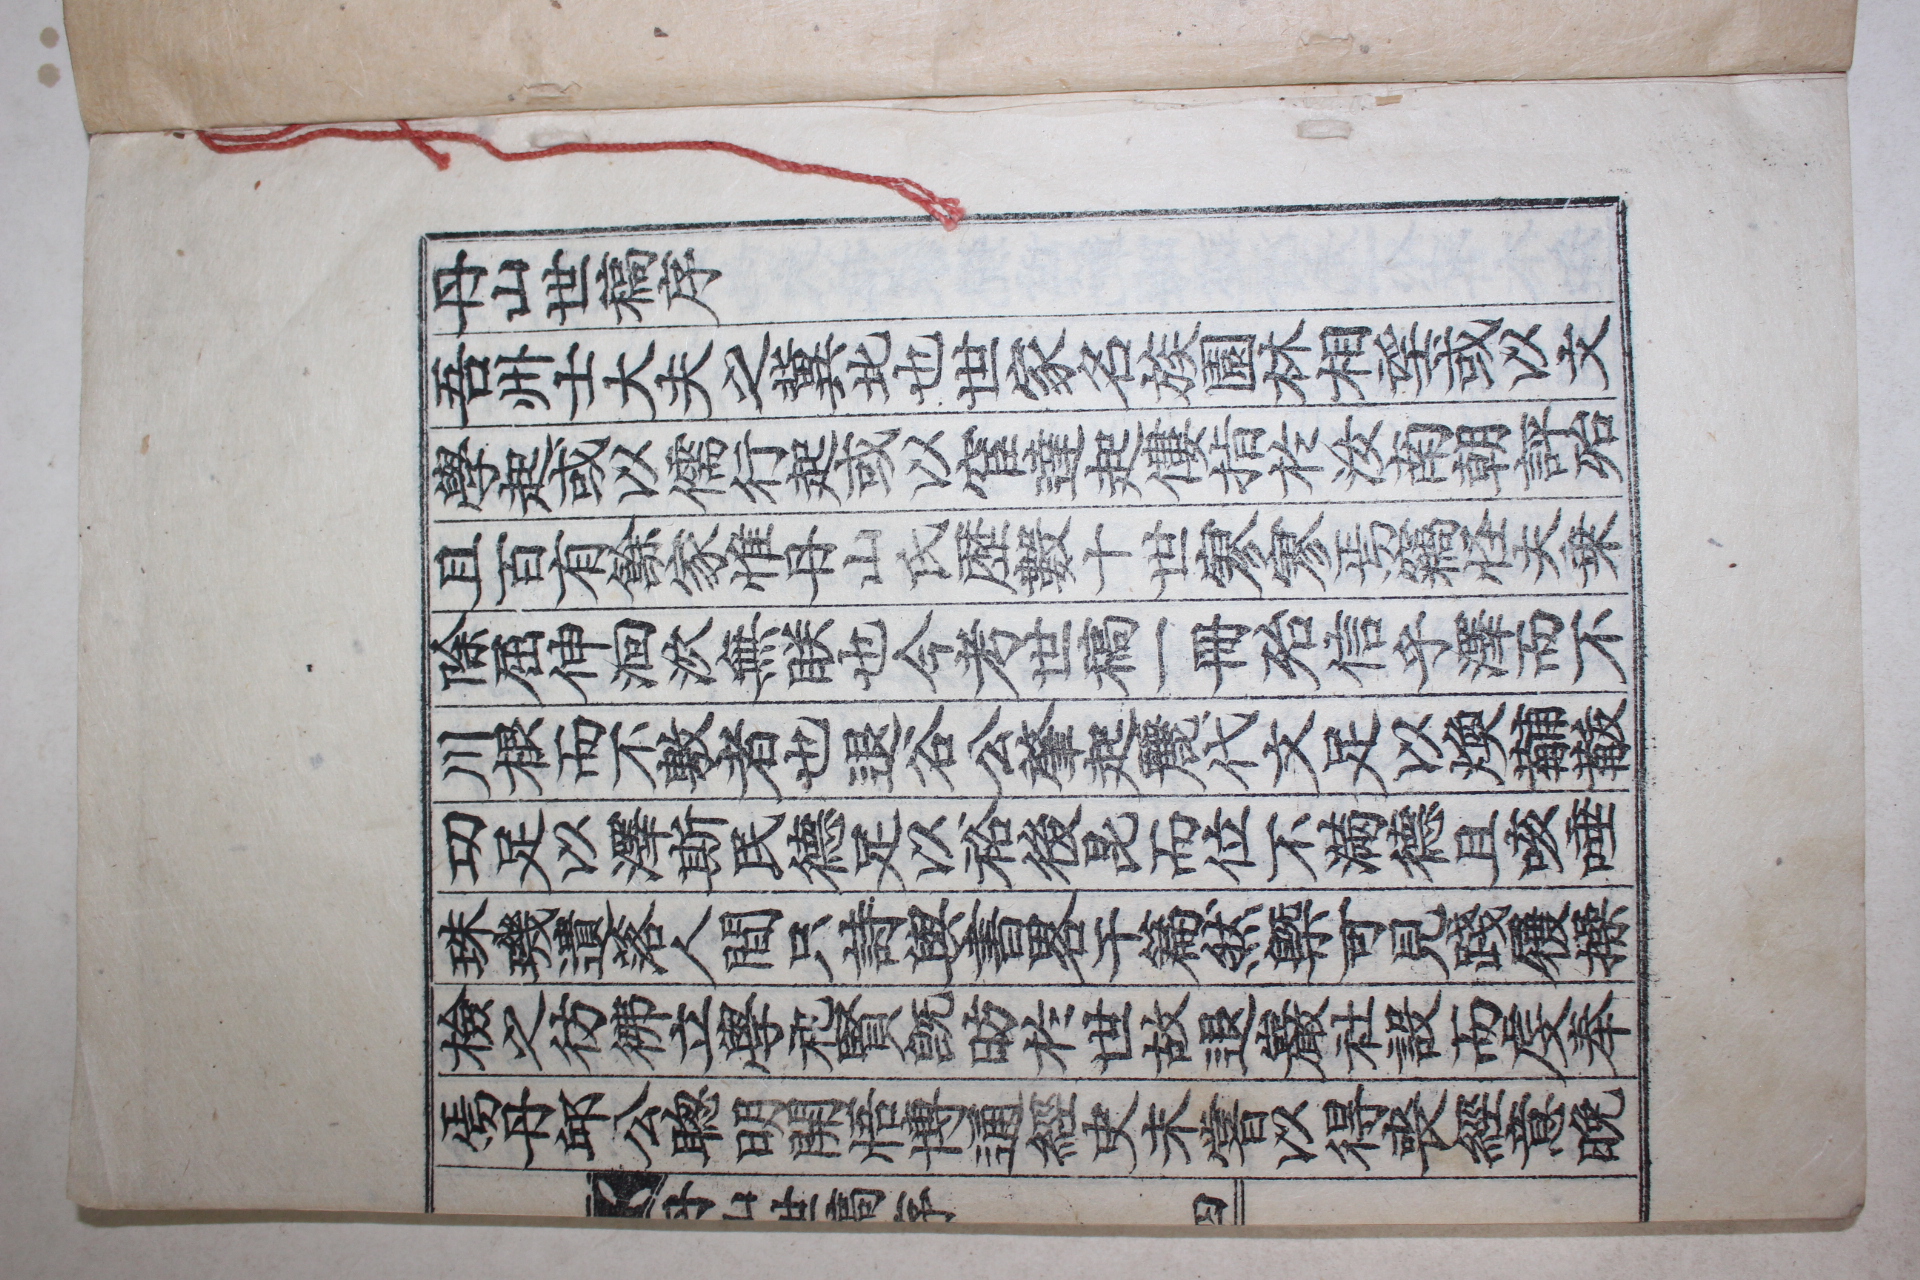 丹山世稿序
吾州士大夫之冀北也世家名族園林相望或以文
學起或以儒行起或以宦達起僂指於汝南朝評殆
且百有餘家惟丹山氏歷數十世寥寥焉竊怪夫乘
除屈伸洄泬無眹也今考世稿一冊殆信乎澤而不
川根而不敷者也退谷公肇起麗代文足以煥黼黻
功足以澤斯民德足以裕後昆而位不滿德且咳唾
珠璣遺落人間只詩與書畧干篇然槩可見踐履操
檢之彷彿立學祀賢旣昉於世故退巖社設而虔奉
焉丹邱公聰明開悟博通經史未嘗以得喪經意晚
丹山世稿序
四